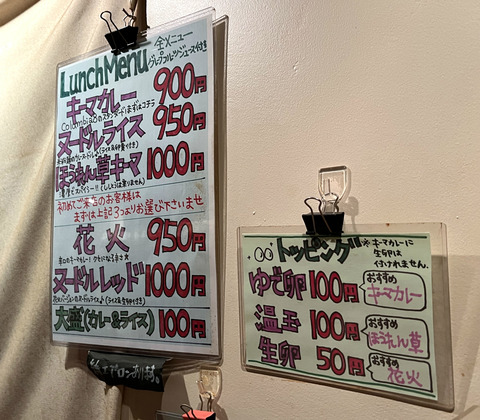 Lunch Menu
全メニュー
グレープフルーツジュース付き
キーマカレー 900円
Columbia8のスタンダード!まずはコチラ
ヌードルライス 950円
ほうれん草キーマ 1000円
初めてご来店のお客様は
まずは上記3つよりお選び下さいませ
花火 950円
ヌードルレッド 1000円
大盛(カレー&ライス) 100円
トッピング
※キーマカレーに
生卵は
付けれません。
ゆで卵 100円
おすすめ
キーマカレー
温玉 100円
おすすめ
ほうれん草
生卵 50円
おすすめ
花火